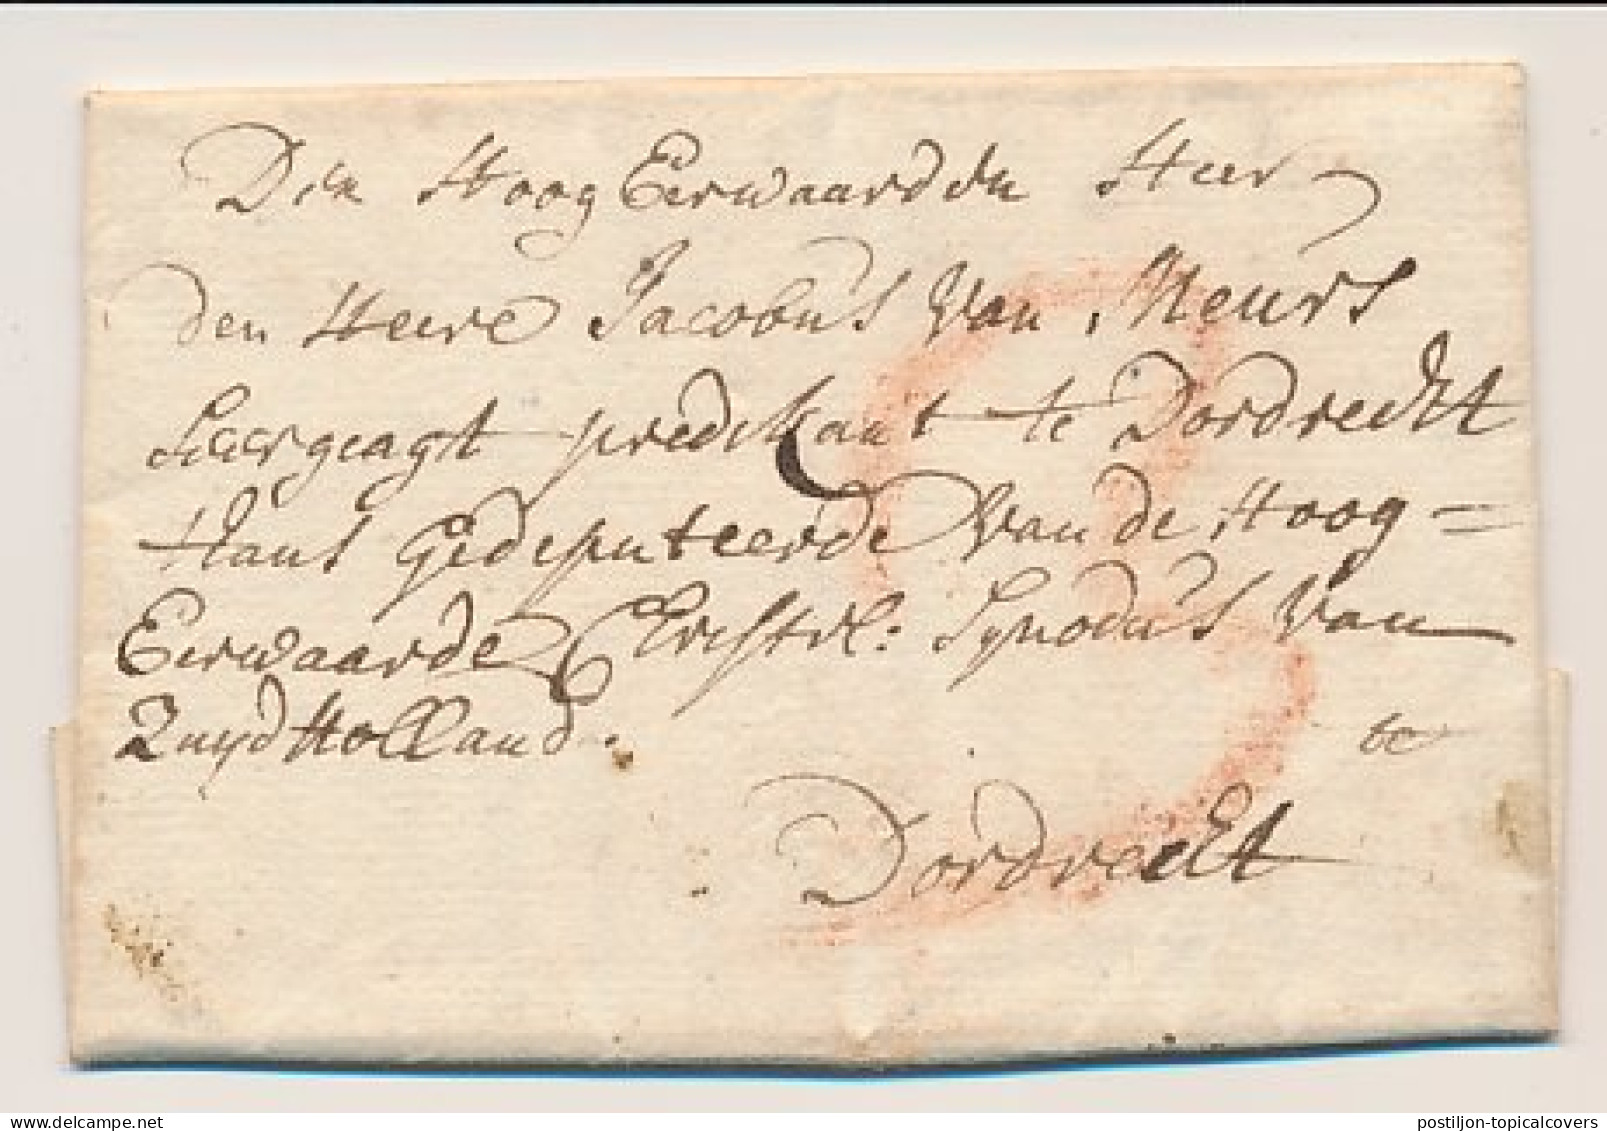 Den Hoog Eerwaarden Heer
den Heere Jacobus van Meurs
Leergeagt predikant te Dordrecht
thans Gedeputeerde van de Hoog=
Eerwaarde Christel: Synodus van
Zuyd Holland. &c
Dordrecht
3
postiljon-topicalcovers